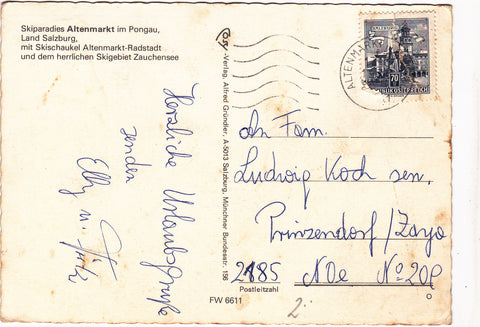 Skiparadies Altenmarkt im Pongau,
Land Salzburg,
mit Skischaukel Altenmarkt-Radstadt
und dem herrlichen Skigebiet Zauchensee
Herzliche Urlaubsgrüße
senden
Elly u. Fritz
-Verlag, Alfred Gründler, A-5013 Salzburg, Münchner Bundesstr. 156
ALTENMARKT
70
REPUBLIK ÖSTERREICH
An Fam.
Ludwig Koch sen.
Prinzendorf/Zaya
2185 NOe No 208
Postleitzahl
FW 6611
2